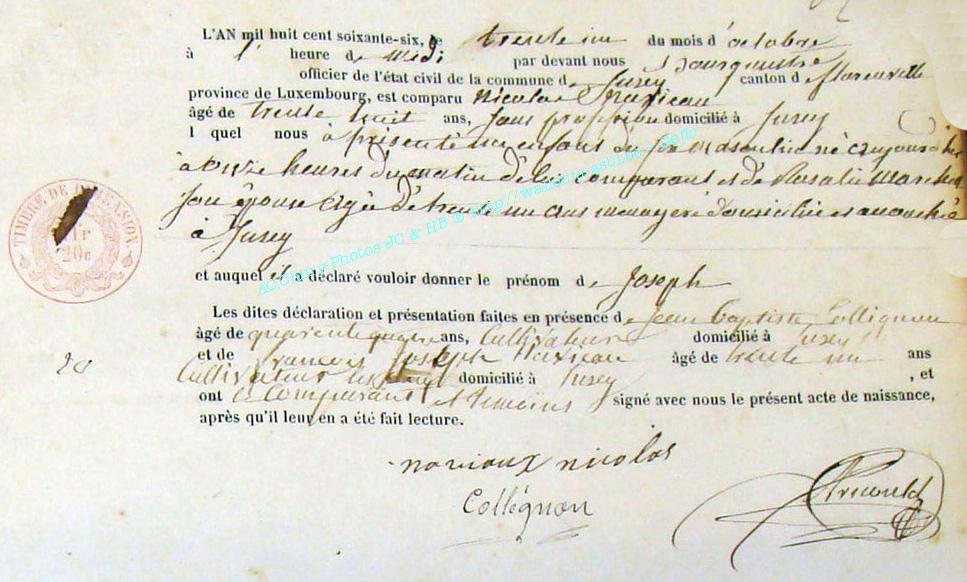 L'AN mil huit cent soixante-six, le trente un du mois d'octobre
à l' heure de midi par devant nous
officier de l'état civil de la commune de Jusey canton de florenville
province de Luxembourg, est comparu Nicolas
âgé de trente huit ans, sans profession domicilié à Jusey
lequel nous à présenté un enfant du sexe masculin né aujourd'hui
à onze heures du matin de lui comparant et de Rosalie
son épouse agée de trente un ans menagere domiciliée et accouchée
à Jusey
et auquel il a déclaré vouloir donner le prénom de Joseph
Les dites déclaration et présentation faites en présence de Jean Baptiste Collignon
âgé de quarante quatre ans, Cultivateur domicilié à Jusey
et de françois Joseph âgé de trente un ans
Cultivateur domicilié à Jusey, et
ont le comparant et temoins signé avec nous le présent acte de naissance,
après qu'il leur en a été fait lecture.
TIMBRE DE DIMENSION.
1 fr
20c
norioux nicolas
Collégnon